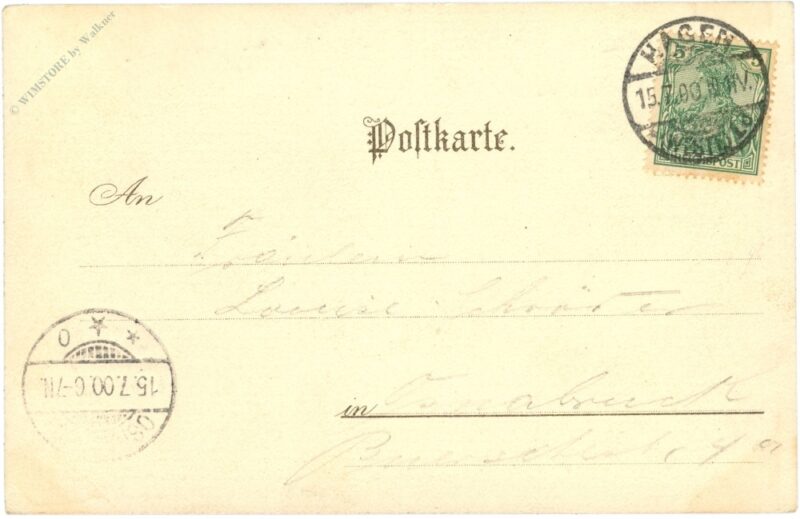 © WIMSTORE by Walkner
HAGEN
15.7.00.
WESTF.
REICHSPOST
Postkarte.
An
Fräulein
Louise Schröder
in Osnabrück
15.7.00. 6-7N.